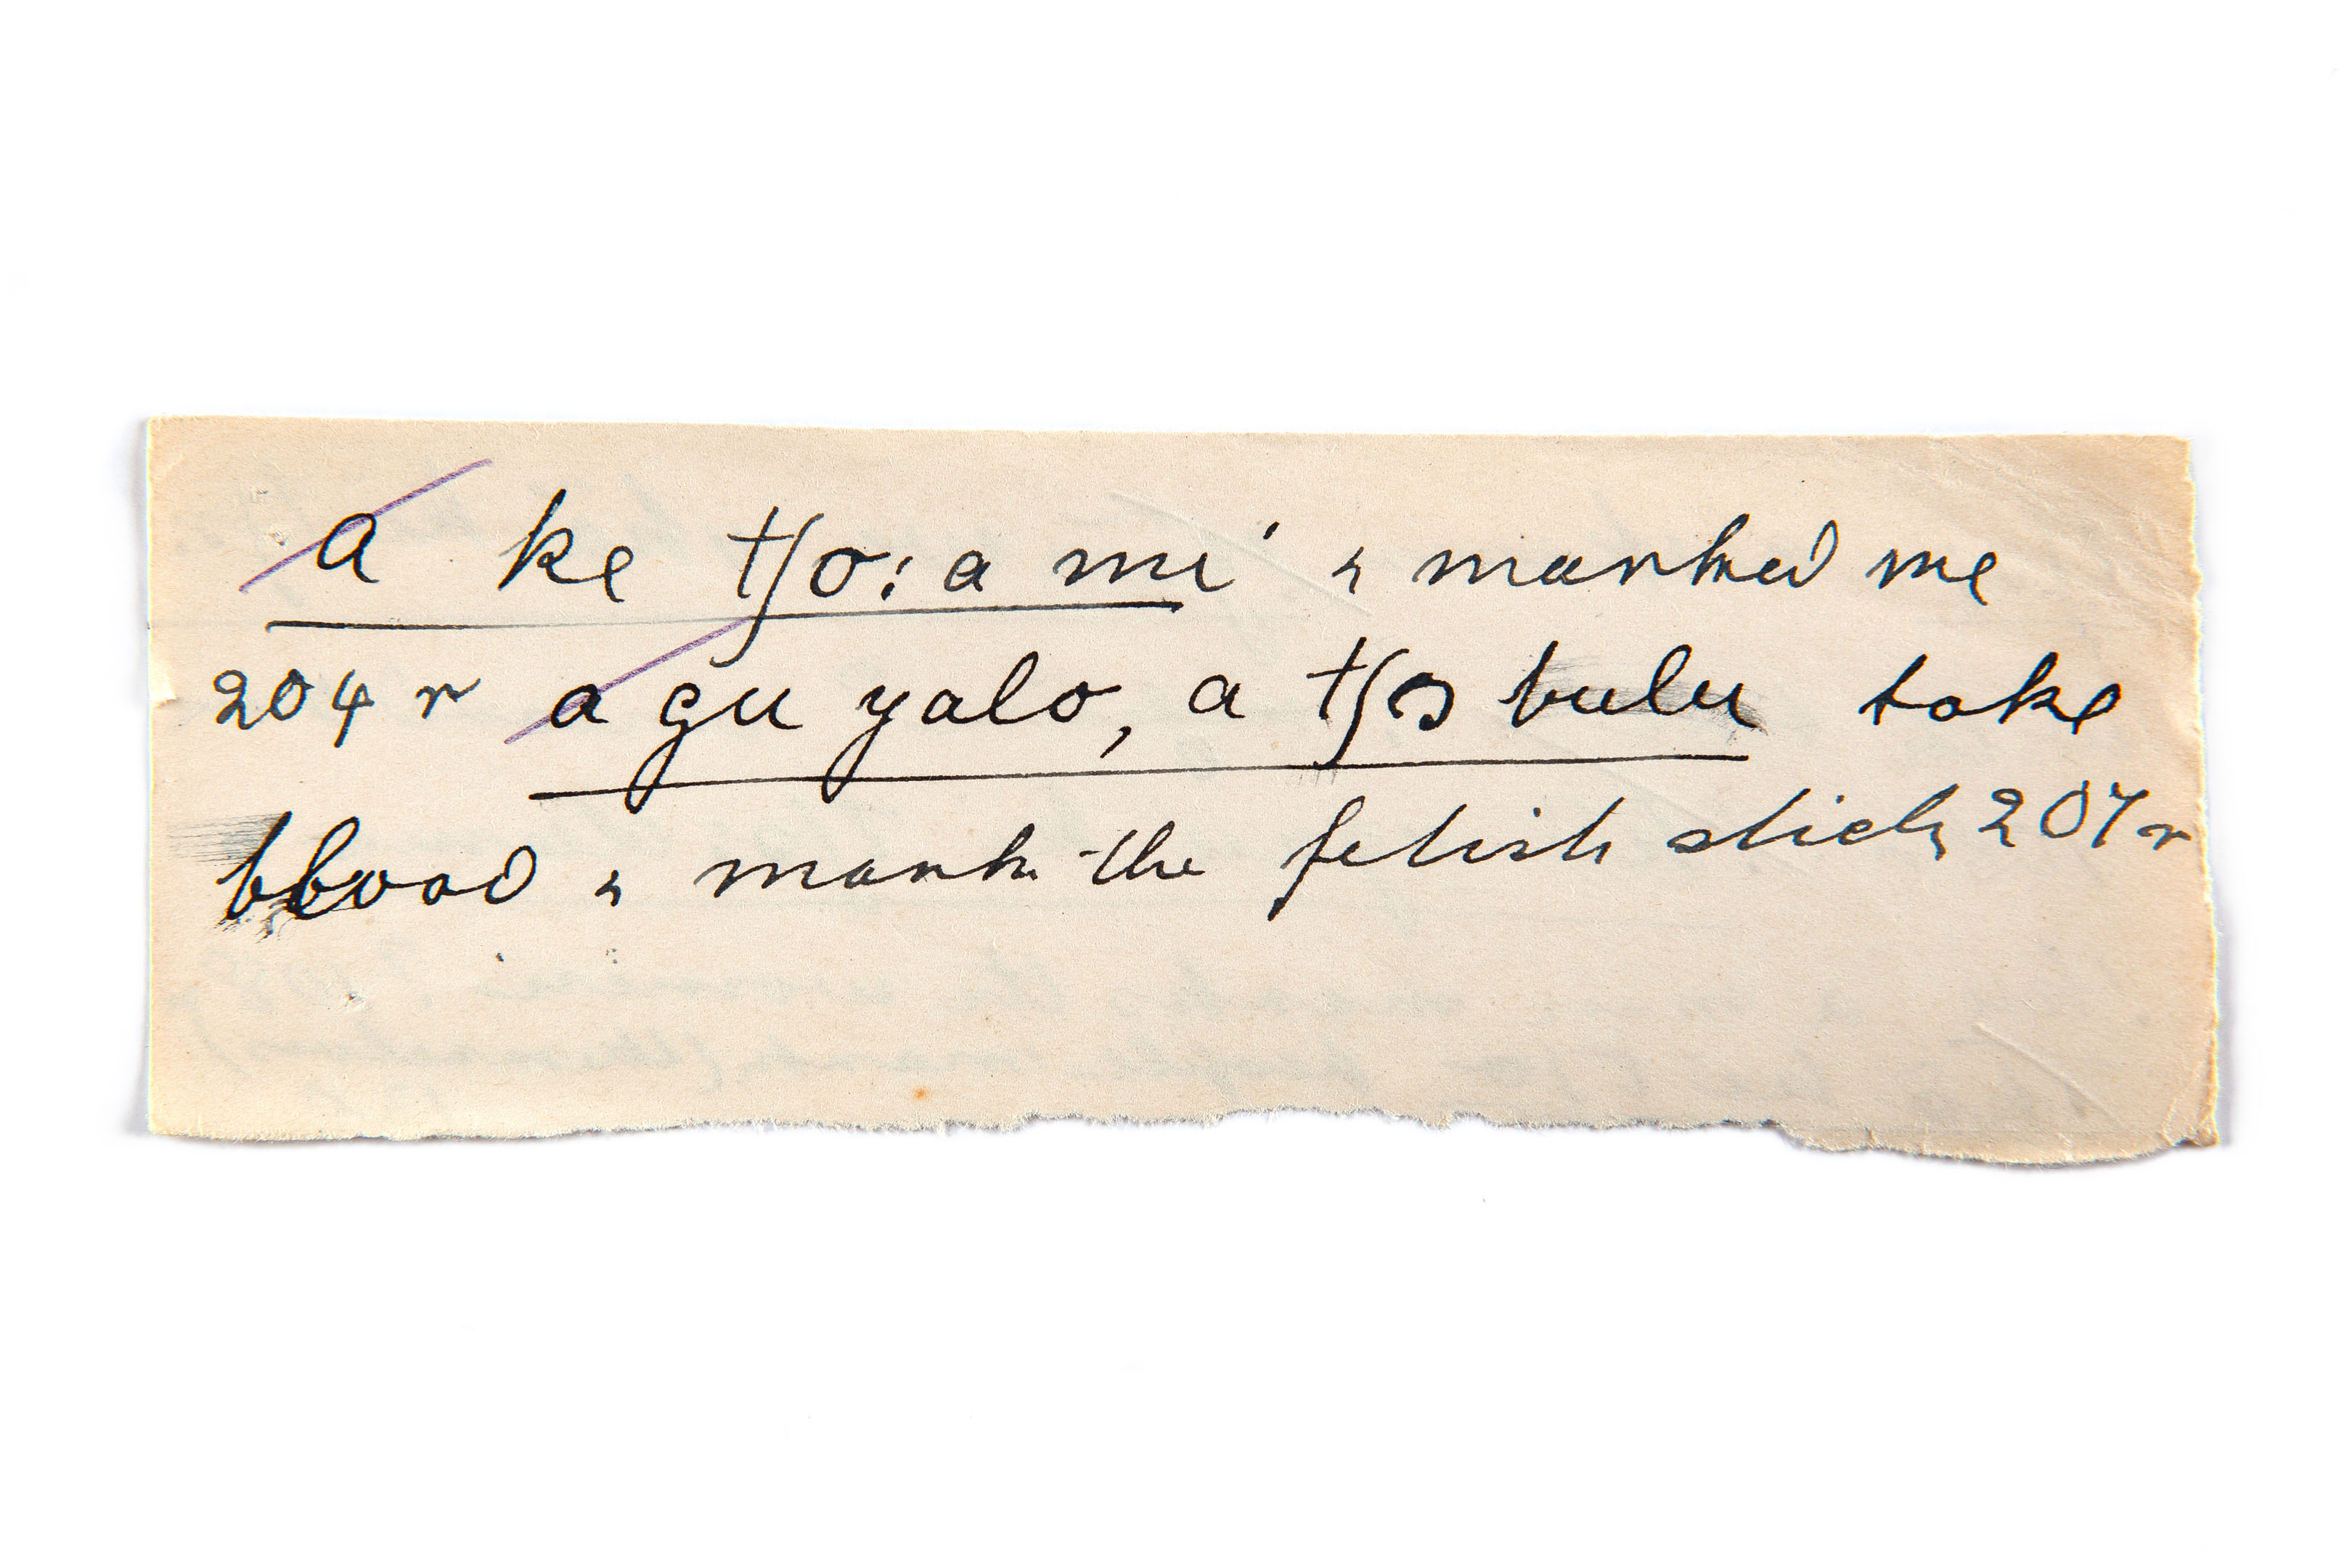 a ke tʃo:a mi' & marked me
204 r a gu yalo, a tʃɔ bulu take
blood & mark the fetish stick 207 r